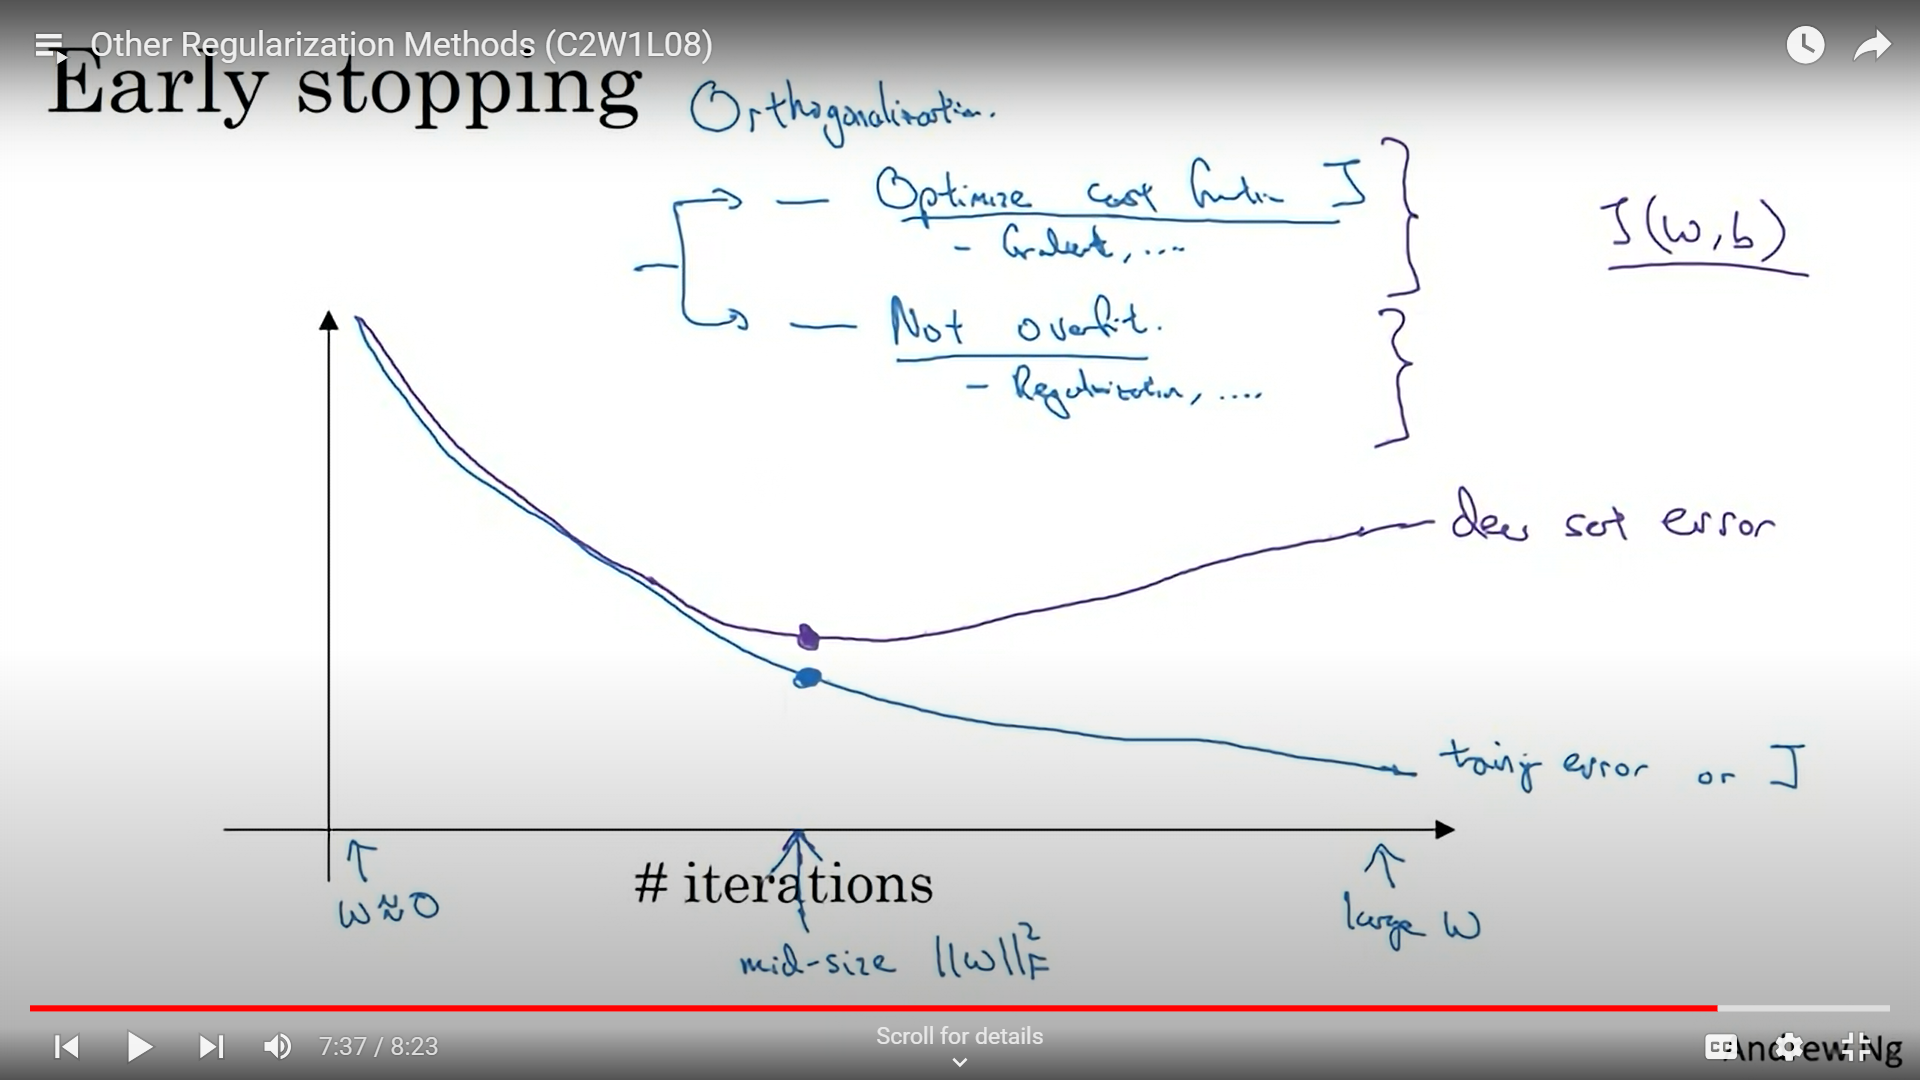 Other Regularization Methods (C2W1L08)
Early stopping
Orthogonalization.
— Optimize cost function J
- Gradient, ....
J(w,b)
— Not overfit.
- Regularization, ....
dev set error
training error or J
# iterations
w≈0
large w
mid-size ||w||²_F
Scroll for details
7:37 / 8:23
CC
Andrew Ng